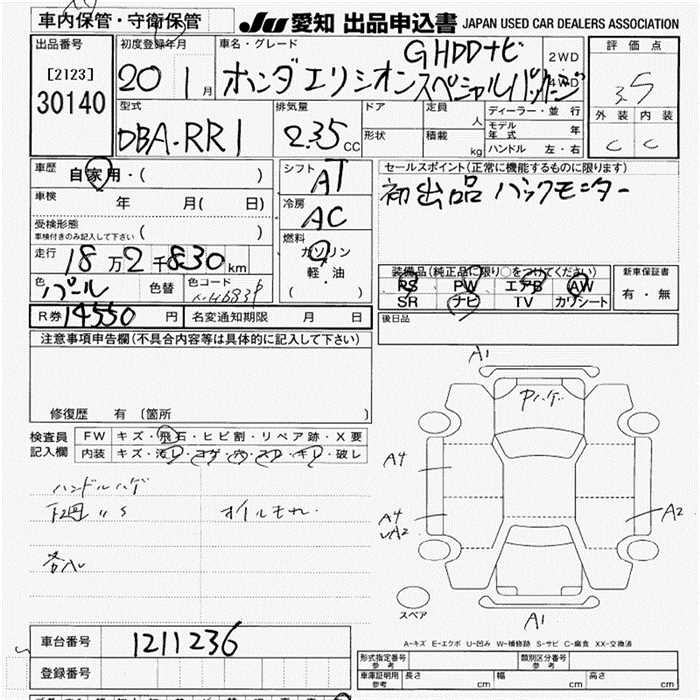 車内保管・守衛保管
JU 愛知 出品申込書 JAPAN USED CAR DEALERS ASSOCIATION
出品番号
[2123]
30140
初度登録年月
20 1月
車名・グレード
GHDDナビ
ホンダエリシオンスペシャルパッケージ
2WD
4WD
評価点
3.5
外装 内装
C C
型式
DBA-RR1
排気量
2.35 CC
ドア
形状
定員 人
積載 kg
ディーラー・並行
モデル年式 年
ハンドル 左・右
車歴
自家用・( )
車検 年 月( 日)
受検形態
車検付きのみ記入して下さい ( )
走行 18万2千830km
色 パール 色替 色コード
R券 14550円 名変通知期限 月 日
シフト AT
冷房 AC
燃料
ガソリン
軽・油
( )
セールスポイント(正常に機能するものに限ります)
初出品 バックモニター
装備品(純正品に限り○をつけてください)
PS PW エアB AW
SR ナビ TV カワシート
新車保証書
有・無
後日品
注意事項申告欄(不具合内容等は具体的に記入して下さい)
修復歴 有 (箇所 )
検査員記入欄
FW キズ・飛石・ヒビ割・リペア跡・X要
内装 キズ・汚レ・コゲ・穴・スレ・キレ・破レ
ハンドルハゲ
下廻りS オイルモレ
A1
A4
A4
A2
A2
A1
スペア
A-キズ E-エクボ U-凹み W-補修跡 S-サビ C-腐食 XX-交換済
車台番号 1211236
登録番号
形式指定番号 参考
類別区分番号 参考
車庫証明用 参考 長さ cm 幅 cm 高さ cm